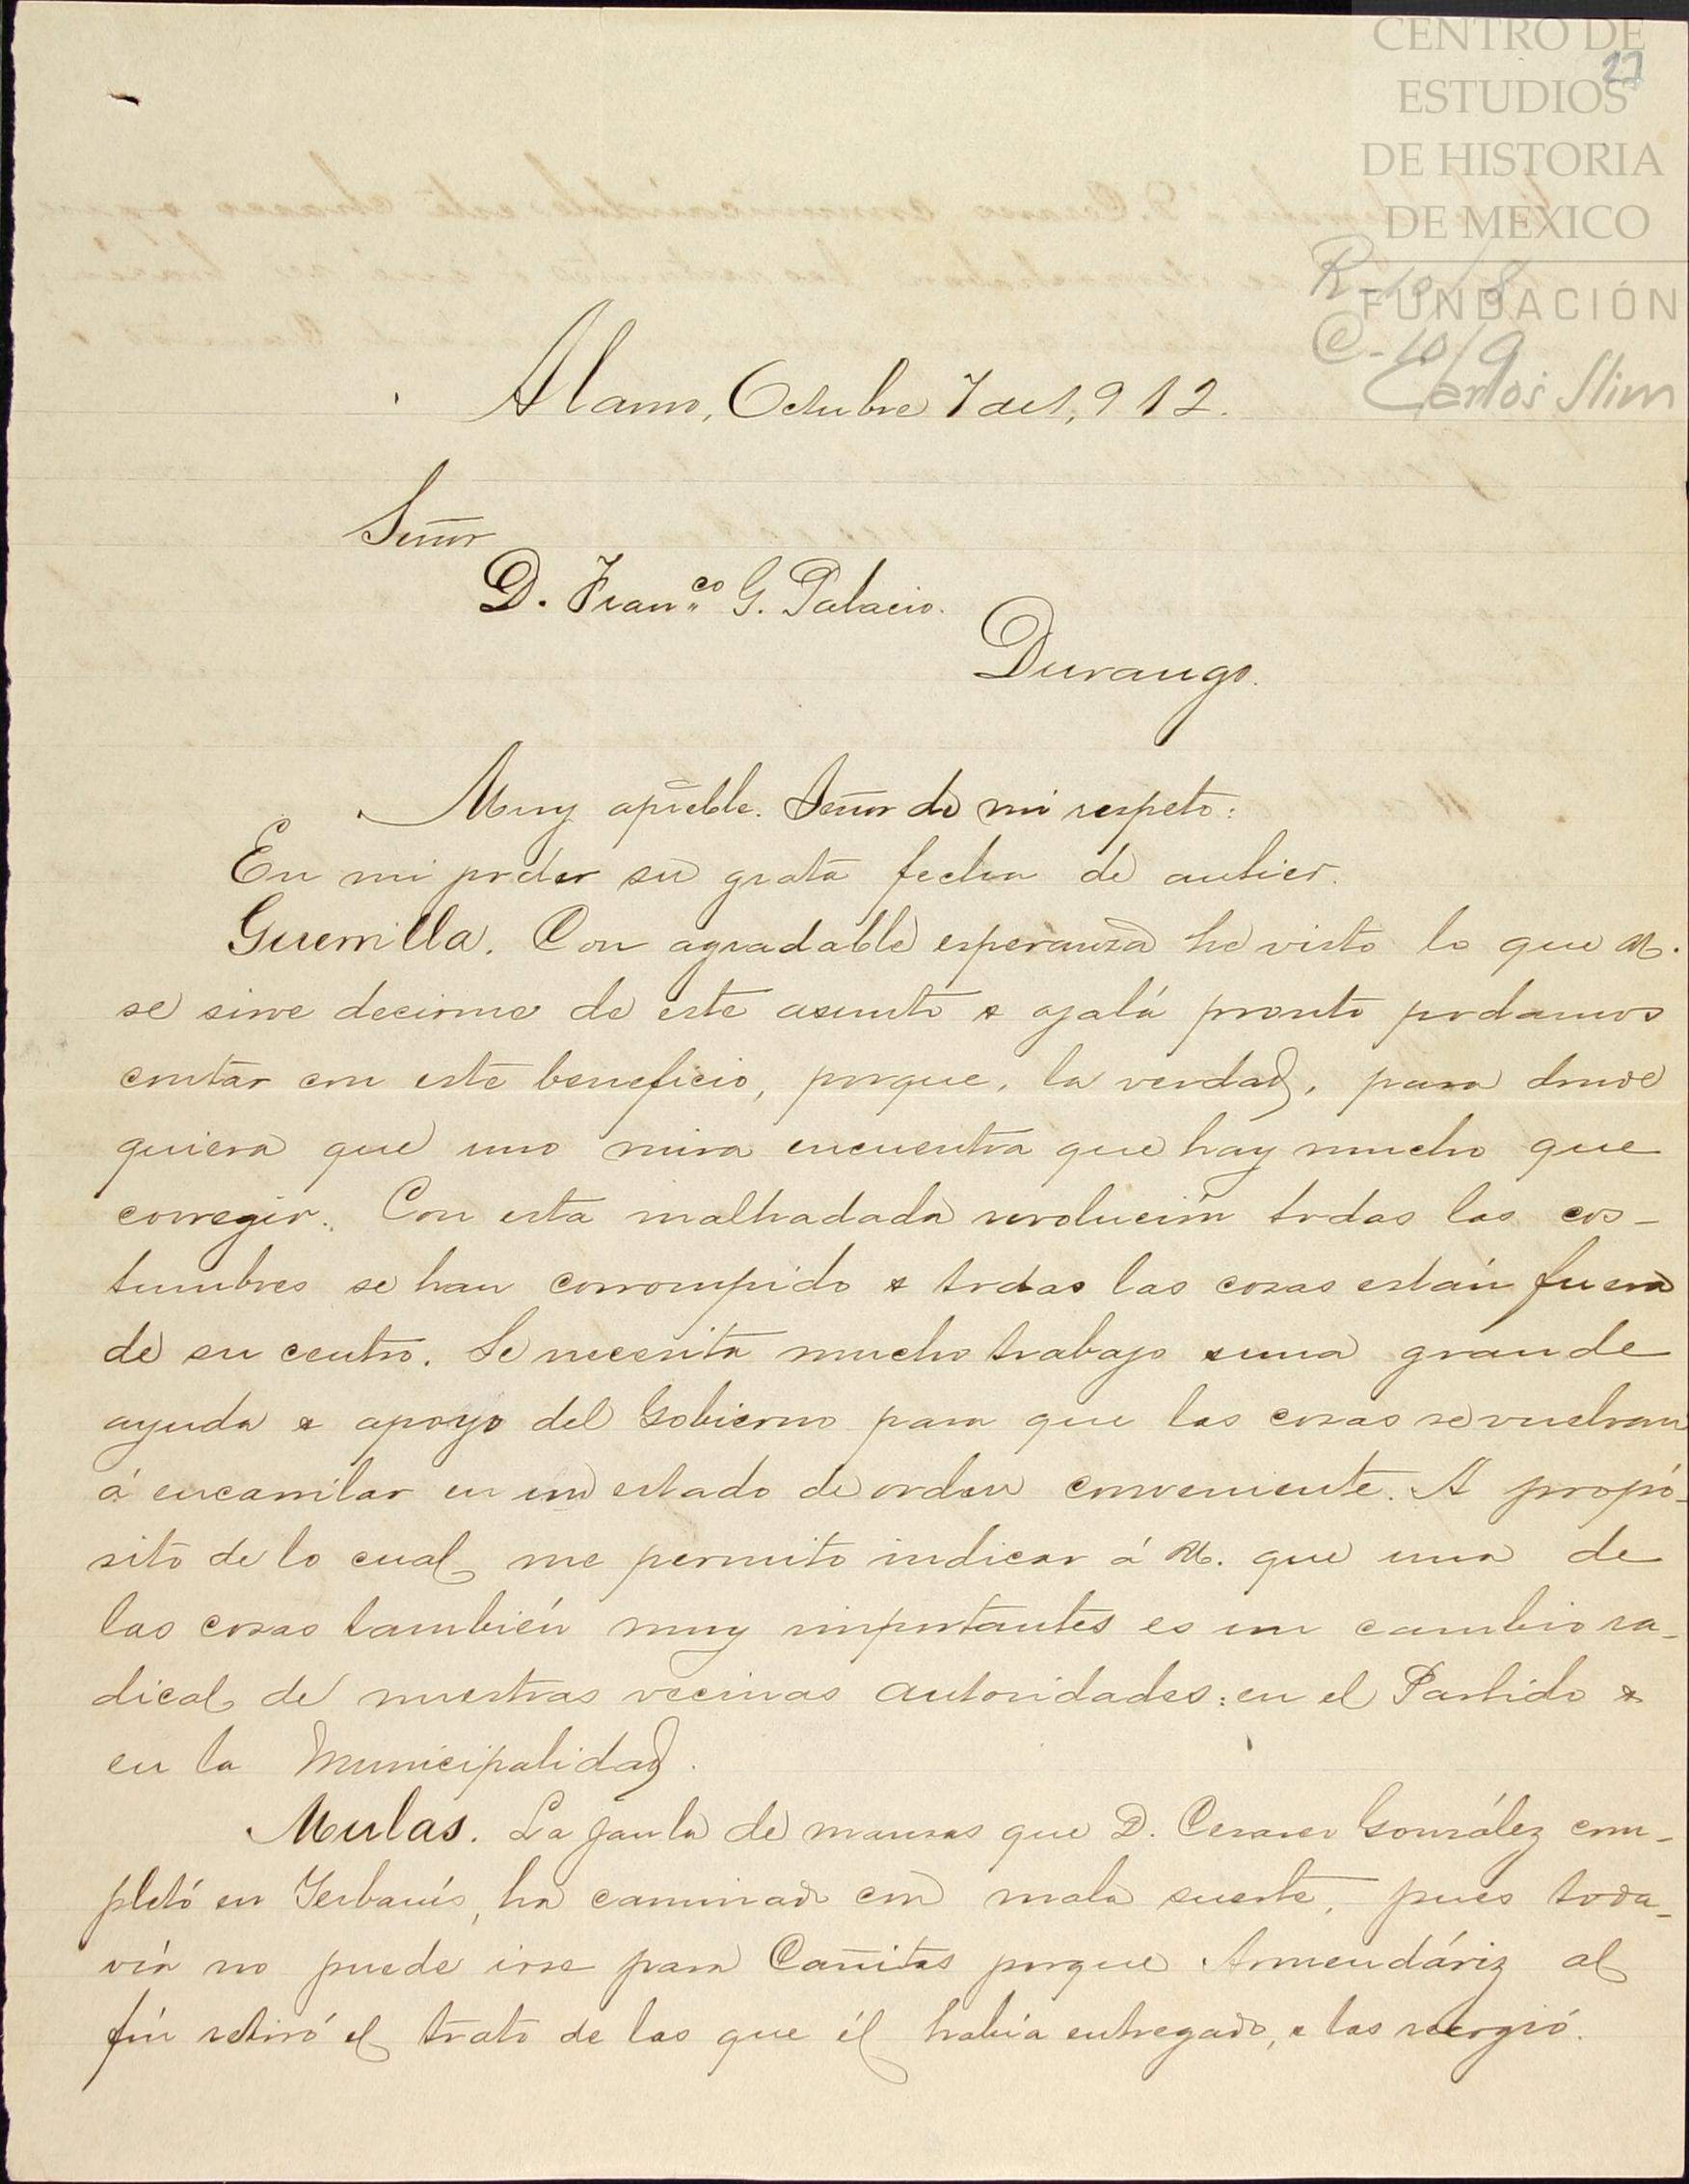 CENTRO DE
27
ESTUDIOS
DE HISTORIA
DE MEXICO
R-10/8
FUNDACIÓN
C-10/9
Carlos Slim
Alamo, Octubre 7 de 1,912.
Señor
D. Fran.co G. Palacio.
Durango.
Muy apreble. Señor de mi respeto:
En mi poder su grata fecha de antier.
Guerrilla. Con agradable esperanza he visto lo que U.
se sirve decirme de este asunto & ojalá pronto podamos
contar con este beneficio, porque, la verdad, para donde
quiera que uno mira encuentra que hay mucho que
corregir. Con esta malhadada revolución todas las cos-
tumbres se han corrompido & todas las cosas están fuera
de su centro. Se necesita mucho trabajo & una grande
ayuda & apoyo del Gobierno para que las cosas se vuelvan
á encarrilar en un estado de orden conveniente. A propó-
sito de lo cual me permito indicar á U. que una de
las cosas también muy importantes es un cambio ra-
dical de nuestras vecinas autoridades: en el Partido &
en la Municipalidad.
Mulas. La jaula de mansas que D. Cesareo González com-
pletó en Yerbanís, ha caminado con mala suerte, pues toda-
vía no puede irse para Cañitas porque Armendáriz al
fin retiró el trato de las que él había entregado, & las recogió.